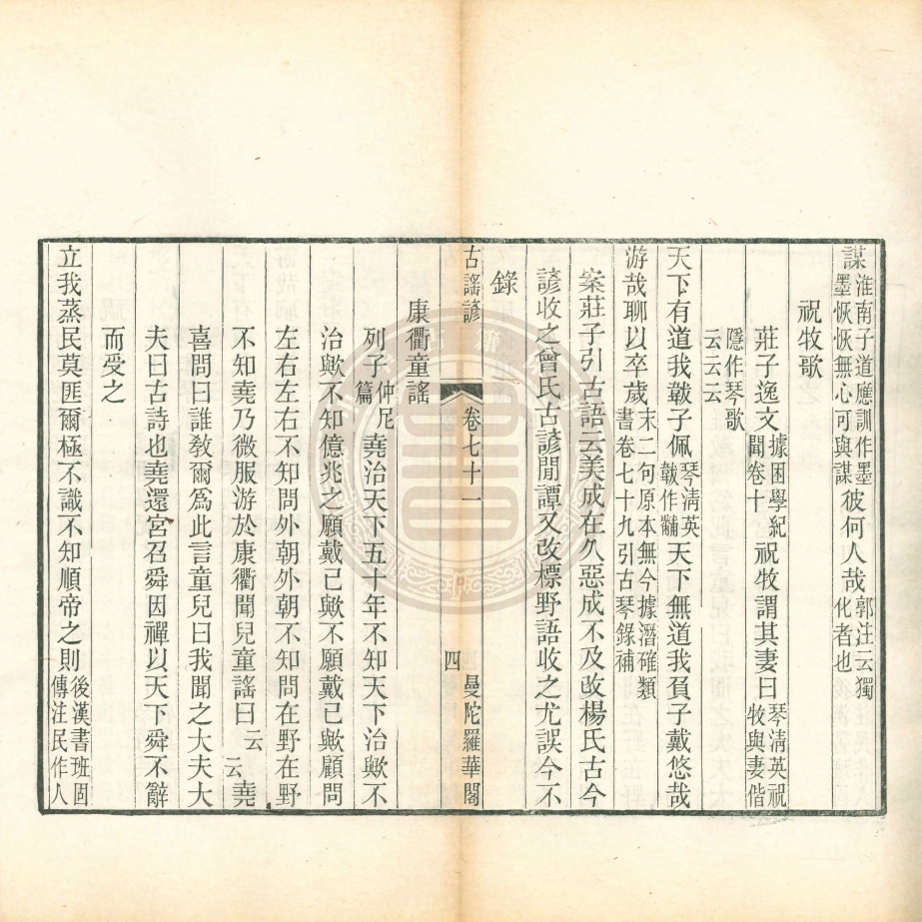 謀淮南子道應訓作墨墨恢恢無心可與謀彼何人哉郭注云獨化者也
祝牧歌
莊子逸文據困學紀聞卷十祝牧謂其妻曰琴淸英祝牧與妻偕
隱作琴歌云云云
天下有道我韍子佩琴淸英韍作黼天下無道我負子戴悠哉
游哉聊以卒歲末二句原本無今據潛確類書卷七十九引古琴錄補
案莊子引古語云美成在久惡成不及改楊氏古今
諺收之曾氏古諺閒譚又改標野語收之尤誤今不
錄
古謠諺 卷七十一 四 曼陀羅華閣
康衢童謠
列子仲尼篇堯治天下五十年不知天下治歟不
治歟不知億兆之願戴己歟不願戴己歟顧問
左右左右不知問外朝外朝不知問在野在野
不知堯乃微服游於康衢聞兒童謠曰云云堯
喜問曰誰敎爾爲此言童兒曰我聞之大夫大
夫曰古詩也堯還宮召舜因禪以天下舜不辭
而受之
立我蒸民莫匪爾極不識不知順帝之則後漢書班固傳注民作人